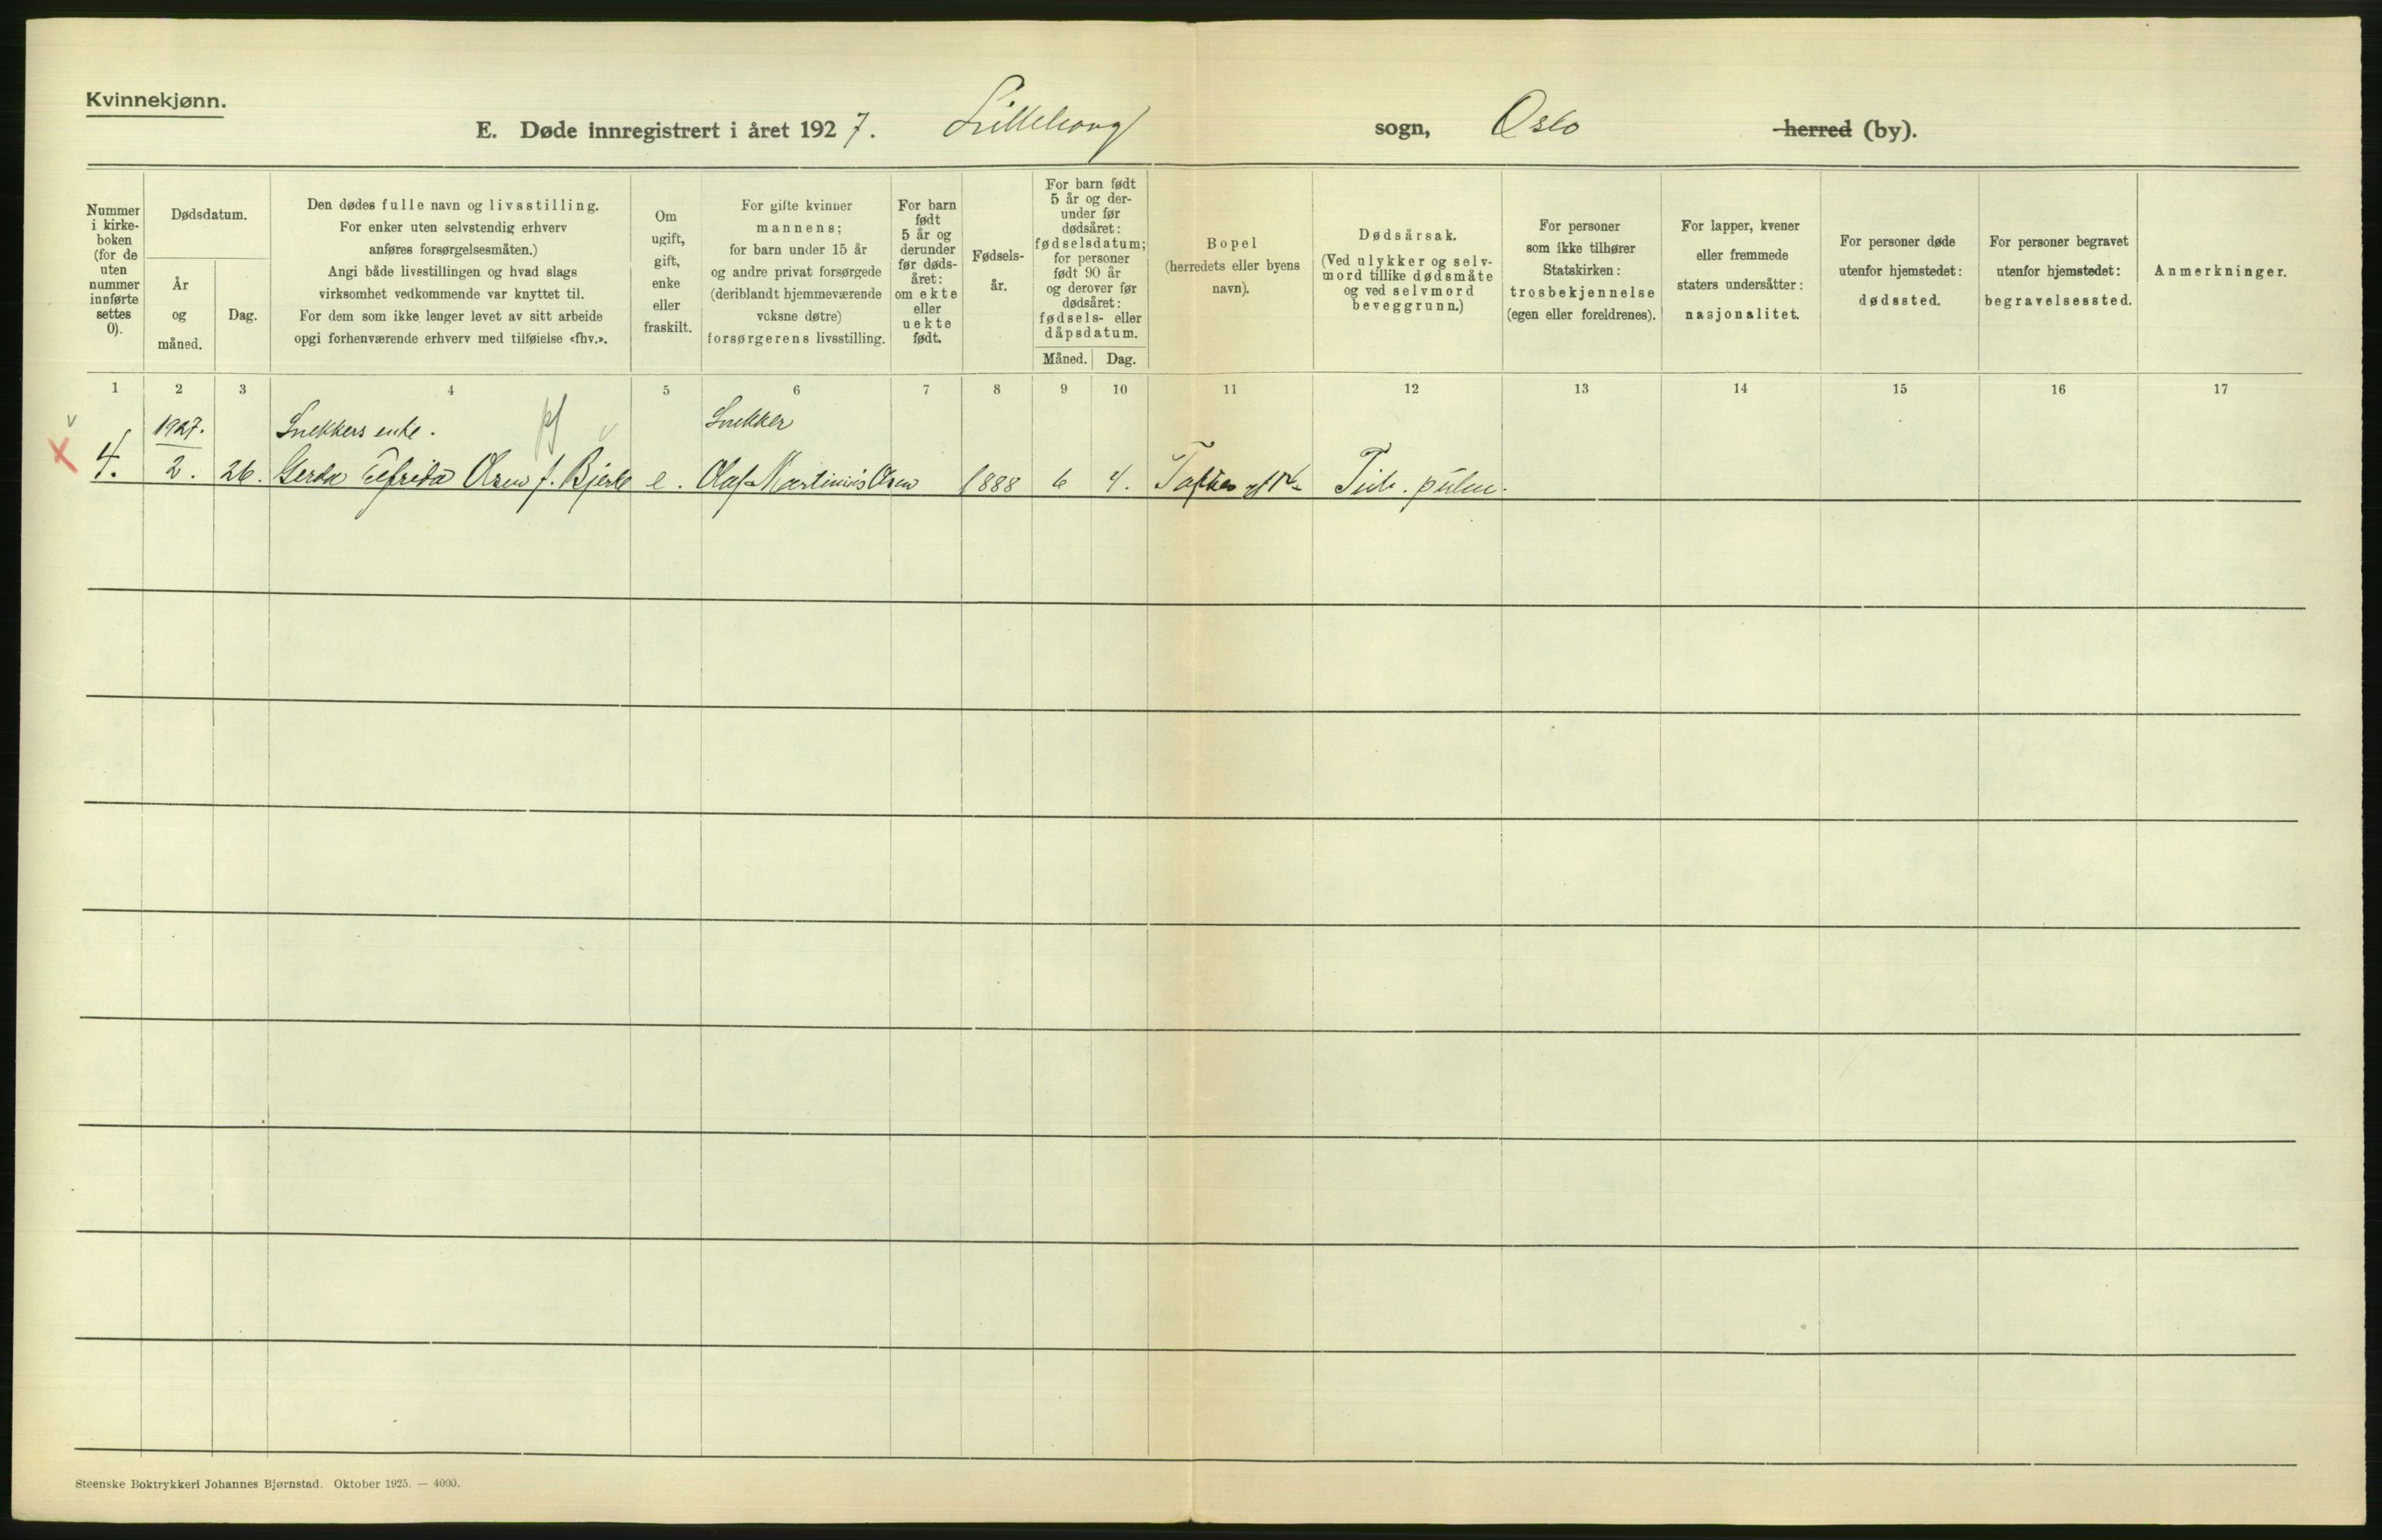 Kvinnekjønn.
E. Døde innregistrert i året 1927. Lilleborg sogn, Oslo herred (by).
Nummer i kirke-
boken
(for de
uten
nummer
innførte
settes
0).
Dødsdatum.
År
og
måned.
Dag.
Den dødes fulle navn og livsstilling.
For enker uten selvstendig erhverv
anføres forsørgelsesmåten.)
Angi både livsstillingen og hvad slags
virksomhet vedkommende var knyttet til.
For dem som ikke lenger levet av sitt arbeide
opgi forhenværende erhverv med tilføielse «fhv.».
Om
ugift,
gift,
enke
eller
fraskilt.
For gifte kvinner
mannens;
for barn under 15 år
og andre privat forsørgede
(deriblandt hjemmeværende
voksne døtre)
forsørgerens livsstilling.
For barn
født
5 år og
derunder
før døds-
året:
om ekte
eller
uekte
født.
Fødsels-
år.
For barn født
5 år og der-
under før
dødsåret:
fødselsdatum;
for personer
født 90 år
og derover før
dødsåret:
fødsels- eller
dåpsdatum.
Måned. Dag.
Bopel
(herredets eller byens
navn).
Dødsårsak.
(Ved ulykker og selv-
mord tillike dødsmåte
og ved selvmord
beveggrunn.)
For personer
som ikke tilhører
Statskirken:
trosbekjennelse
(egen eller foreldrenes).
For lapper, kvener
eller fremmede
staters undersåtter:
nasjonalitet.
For personer døde
utenfor hjemstedet:
dødssted.
For personer begravet
utenfor hjemstedet:
begravelsessted.
Anmerkninger.
1 2 3 4 5 6 7 8 9 10 11 12 13 14 15 16 17
1927. Snekkers enke. Snekker
4. 2. 26. Gerda Elfrida Olsen f. Bjerke e. Olaf Martinius Olsen 1888 6 4. Tub. pulm.
Steenske Boktrykkeri Johannes Bjørnstad. Oktober 1925. — 4000.